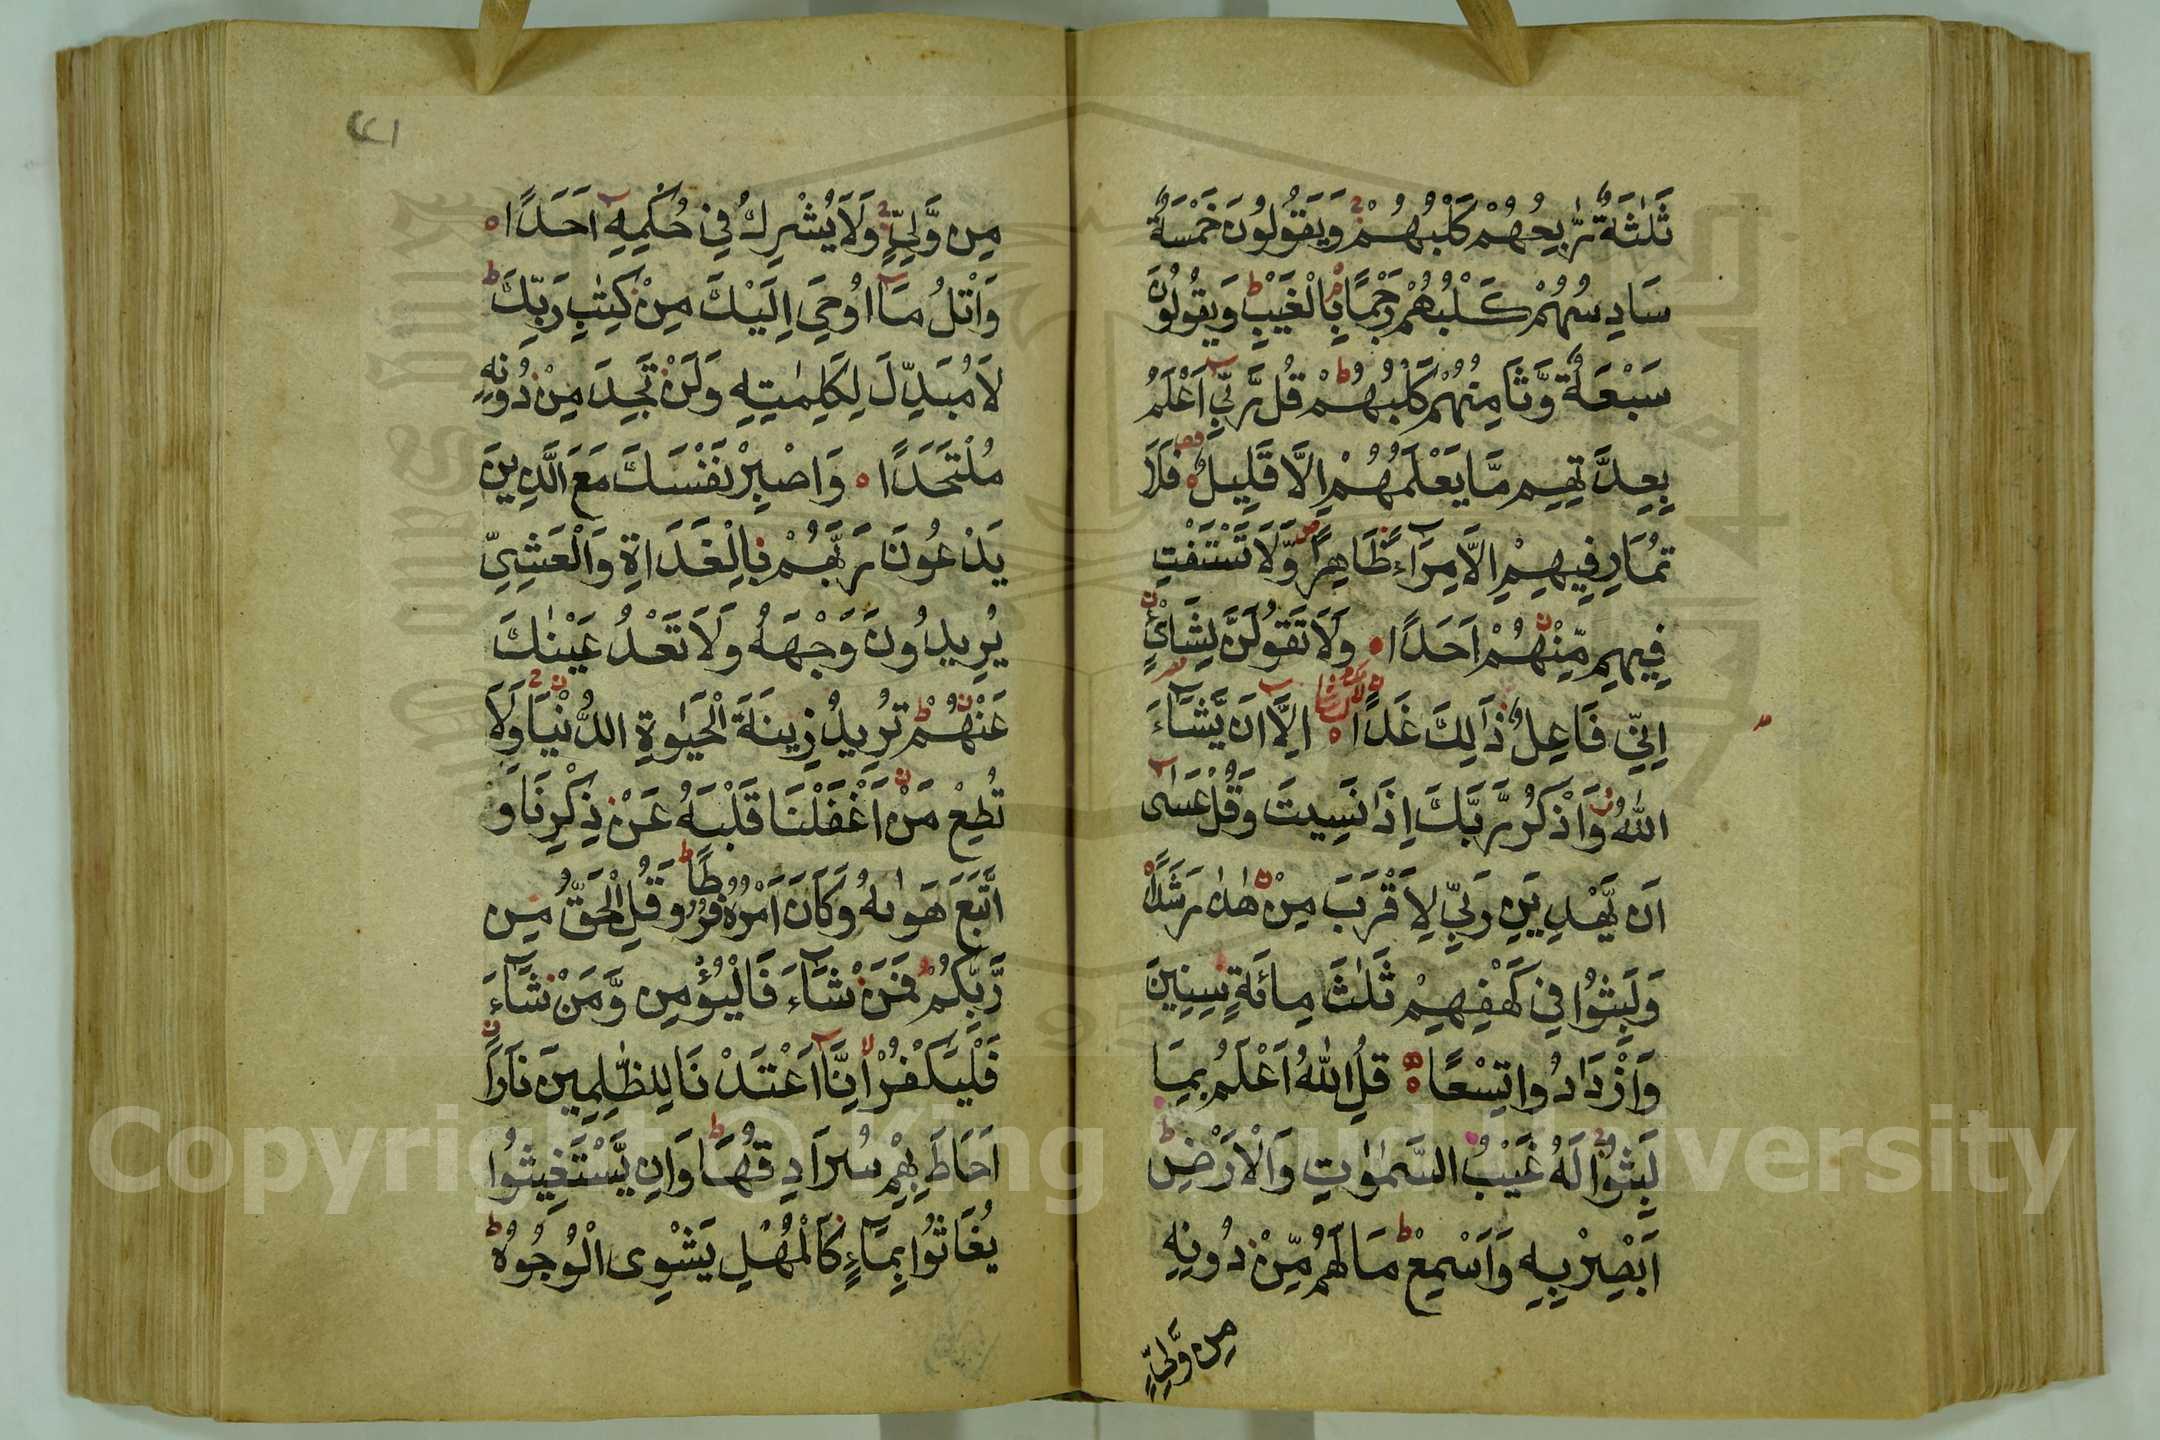 ثَلٰثَةٌ رَّابِعُهُمْ كَلْبُهُمْ وَيَقُولُونَ خَمْسَةٌ
سَادِسُهُمْ كَلْبُهُمْ رَجْمًا بِالْغَيْبِ وَيَقُولُونَ
سَبْعَةٌ وَّثَامِنُهُمْ كَلْبُهُمْ قُل رَّبِّي اَعْلَمُ
بِعِدَّتِهِم مَّا يَعْلَمُهُمْ اِلَّا قَلِيلٌ فَلَا
تُمَارِ فِيهِمْ اِلَّا مِرَآءً ظَاهِرًا وَّلَا تَسْتَفْتِ
فِيهِم مِّنْهُمْ اَحَدًا وَلَا تَقُولَنَّ لِشَائْءٍ
اِنِّي فَاعِلٌ ذَالِكَ غَدًا اِلَّا اَن يَّشَآءَ
اللّٰهُ وَاذْكُر رَّبَّكَ اِذَا نَسِيتَ وَقُلْ عَسٰى
اَن يَّهْدِيَنِ رَبِّي لِاَقْرَبَ مِنْ هٰذَا رَشَدًا
وَلَبِثُوا فِي كَهْفِهِمْ ثَلٰثَ مِائَةٍ سِنِينَ
وَازْدَادُوا تِسْعًا قُلِ اللّٰهُ اَعْلَمُ بِمَا
لَبِثُوا لَهُ غَيْبُ السَّمٰوٰتِ وَالْاَرْضِ
اَبْصِرْ بِهِ وَاَسْمِعْ مَا لَهُم مِّنْ دُونِهِ
مِن وَّلِيٍّ
٤١
مِن وَّلِيٍّ وَلَا يُشْرِكُ فِي حُكْمِهِ اَحَدًا
وَاتْلُ مَآ اُوحِيَ اِلَيْكَ مِنْ كِتٰبِ رَبِّكَ
لَا مُبَدِّلَ لِكَلِمٰتِهِ وَلَنْ تَجِدَ مِنْ دُونِهِ
مُلْتَحَدًا وَاصْبِرْ نَفْسَكَ مَعَ الَّذِينَ
يَدْعُونَ رَبَّهُمْ بِالْغَدَاةِ وَالْعَشِيِّ
يُرِيدُونَ وَجْهَهُ وَلَا تَعْدُ عَيْنٰكَ
عَنْهُمْ تُرِيدُ زِينَةَ الْحَيٰوةِ الدُّنْيَا وَلَا
تُطِعْ مَنْ اَغْفَلْنَا قَلْبَهُ عَنْ ذِكْرِنَا وَ
اتَّبَعَ هَوٰىهُ وَكَانَ اَمْرُهُ فُرُطًا وَقُلِ الْحَقُّ مِن
رَّبِّكُمْ فَمَنْ شَآءَ فَالْيُؤْمِن وَّمَنْ شَآءَ
فَلْيَكْفُرْ اِنَّآ اَعْتَدْنَا لِلظّٰلِمِينَ نَارًا
اَحَاطَ بِهِمْ سُرَادِقُهَا وَاِن يَّسْتَغِيثُوا
يُغَاثُوا بِمَآءٍ كَالْمُهْلِ يَشْوِى الْوُجُوهَ
Copyright © King Saud University